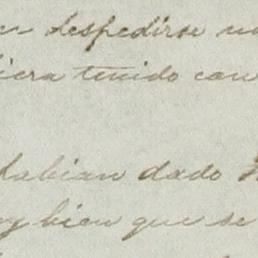 despedirse
tenido con
habian dado
bien que se